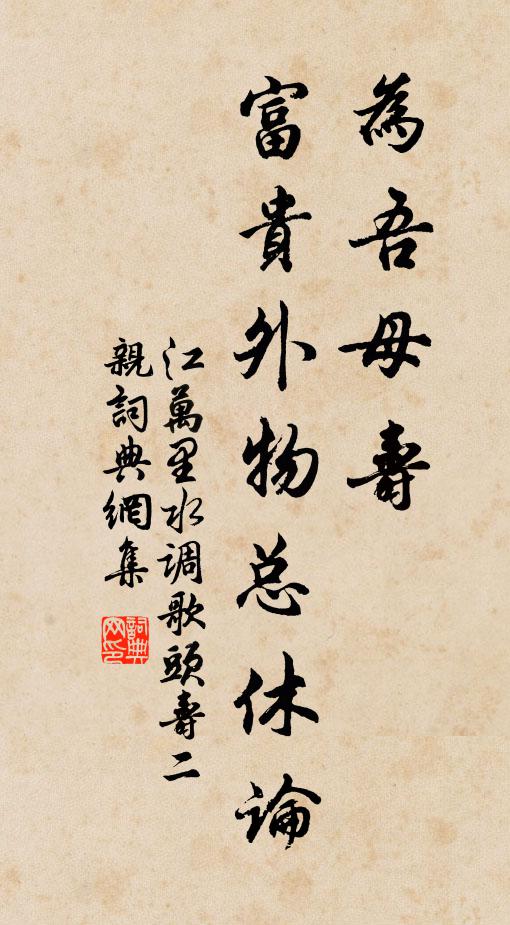 為吾母壽
富貴外物总休論
江萬里水调歌頭壽二
親詞典網集
詞典网印